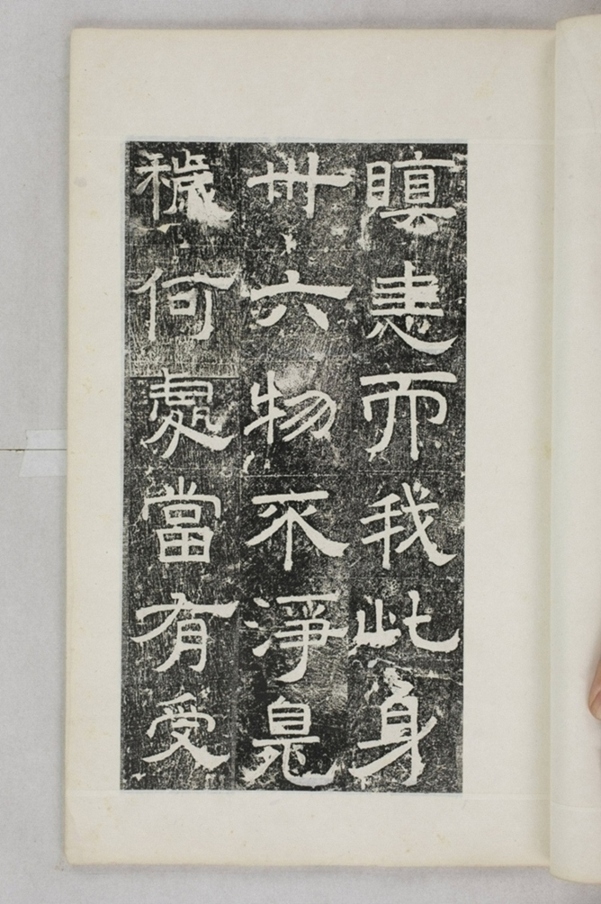 瞋恚而我此身
卅六物不淨臭
穢何處當有受